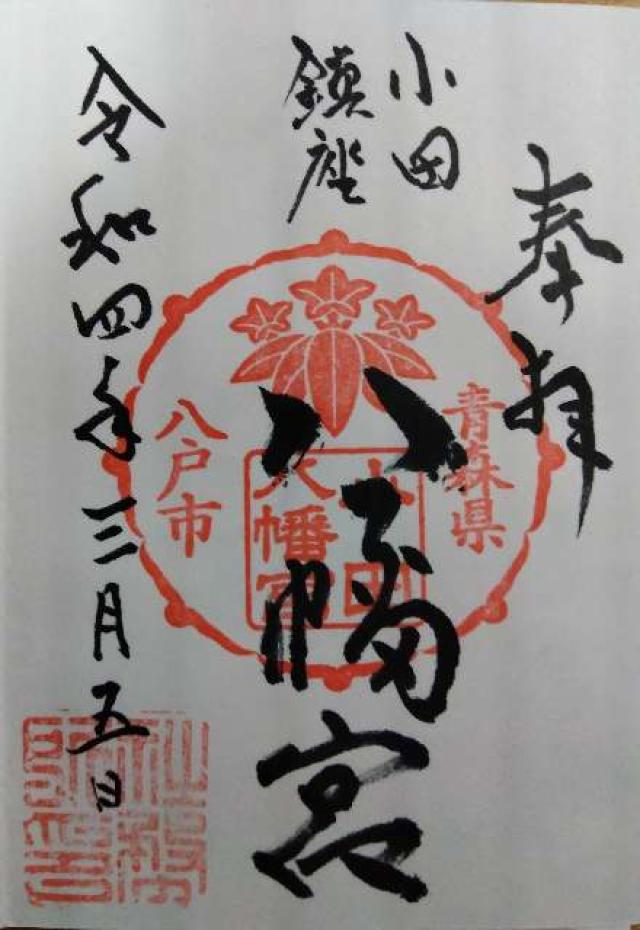 奉拝
小田
鎮座
八幡宮
令和四年三月五日
青森県
小田
八幡宮
八戸市
社務
所印